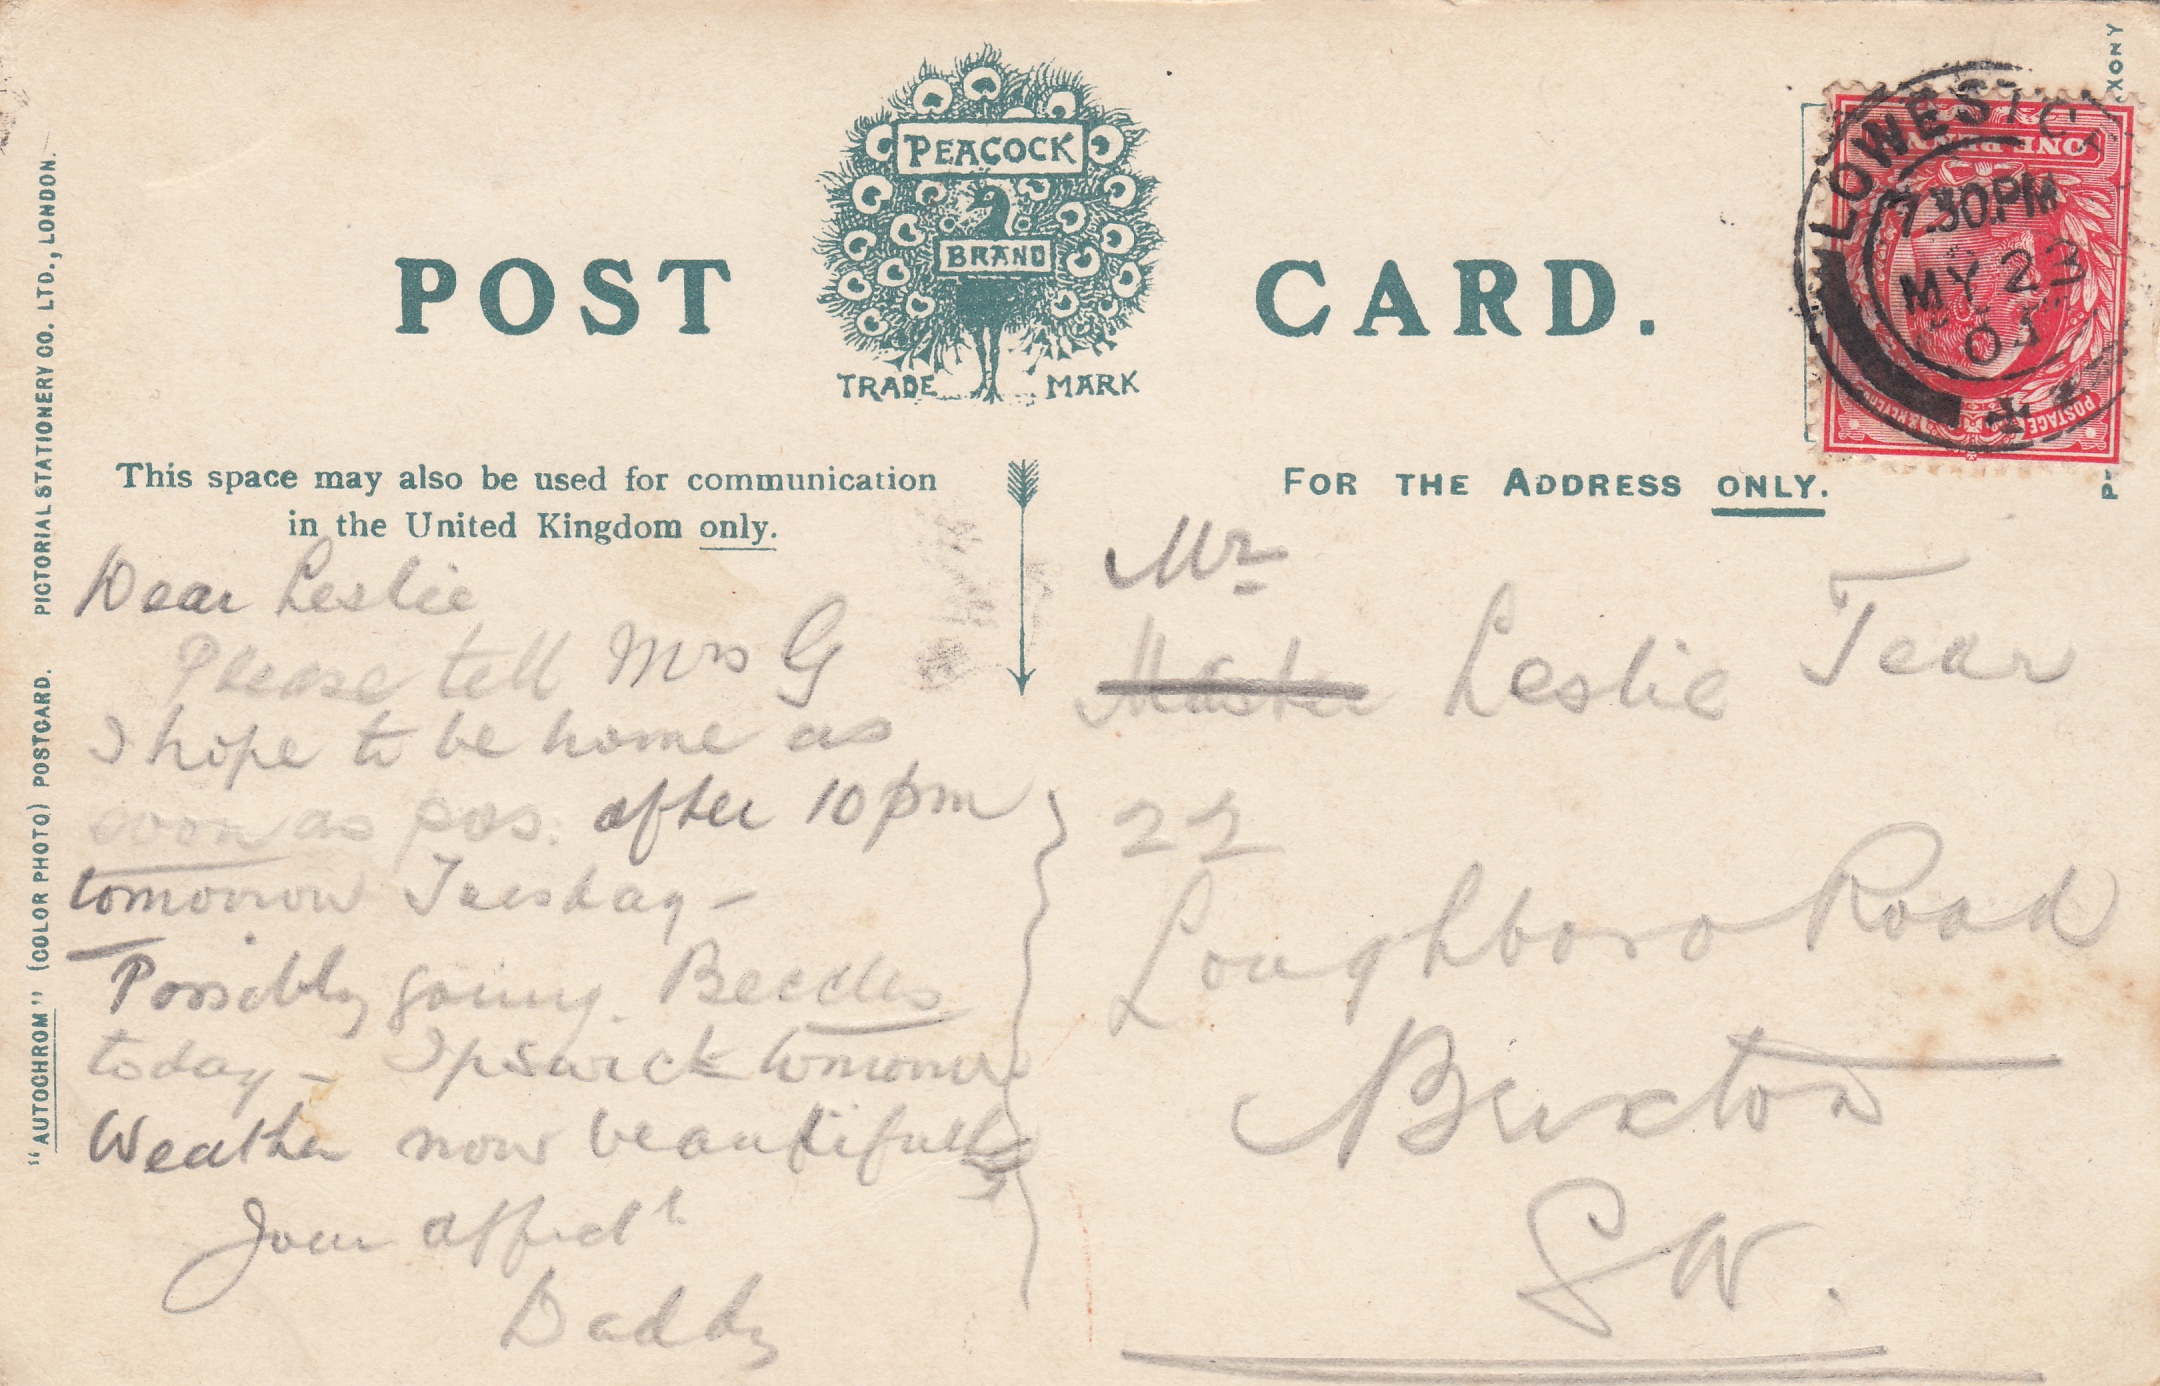 POST CARD.
PEACOCK
BRAND
TRADE MARK
This space may also be used for communication
in the United Kingdom only.
FOR THE ADDRESS ONLY.
"AUTOCHROM" (COLOR PHOTO) POSTCARD. PICTORIAL STATIONERY CO. LTD., LONDON.
LOWESTOFT
7.30PM
MY 23
ONE PENNY
POSTAGE & REVENUE
Dear Leslie
Please tell Mrs G
I hope to be home as
soon as pos. after 10 pm
tomorrow Tuesday -
Possibly going Beccles
today - Ipswick tomorrow
Weather now beautifull
Your affectn
Daddy
Mr
Master Leslie Tear
22
Loughboro Road
Brixton
SW.